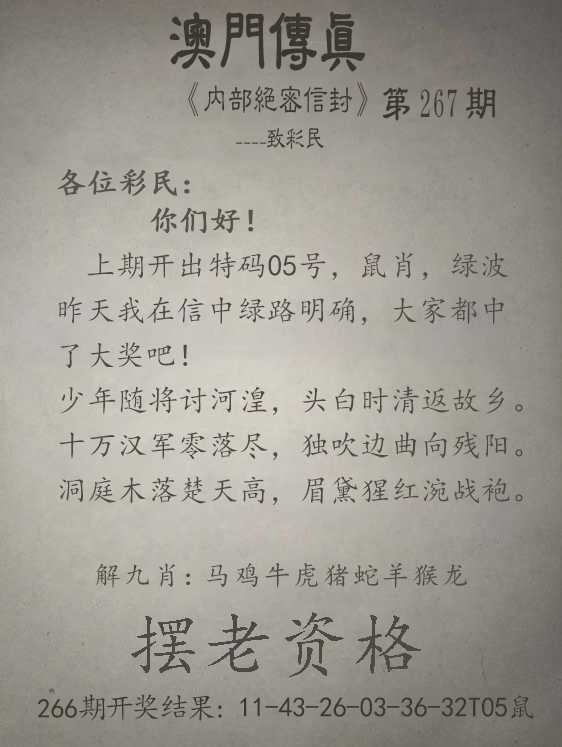 澳門傳眞
《内部絕密信封》第267期
----致彩民
各位彩民：
你们好！
上期开出特码05号，鼠肖，绿波
昨天我在信中绿路明确，大家都中
了大奖吧！
少年随将讨河湟，头白时清返故乡。
十万汉军零落尽，独吹边曲向残阳。
洞庭木落楚天高，眉黛猩红涴战袍。
解九肖：马鸡牛虎猪蛇羊猴龙
摆老资格
266期开奖结果：11-43-26-03-36-32T05鼠